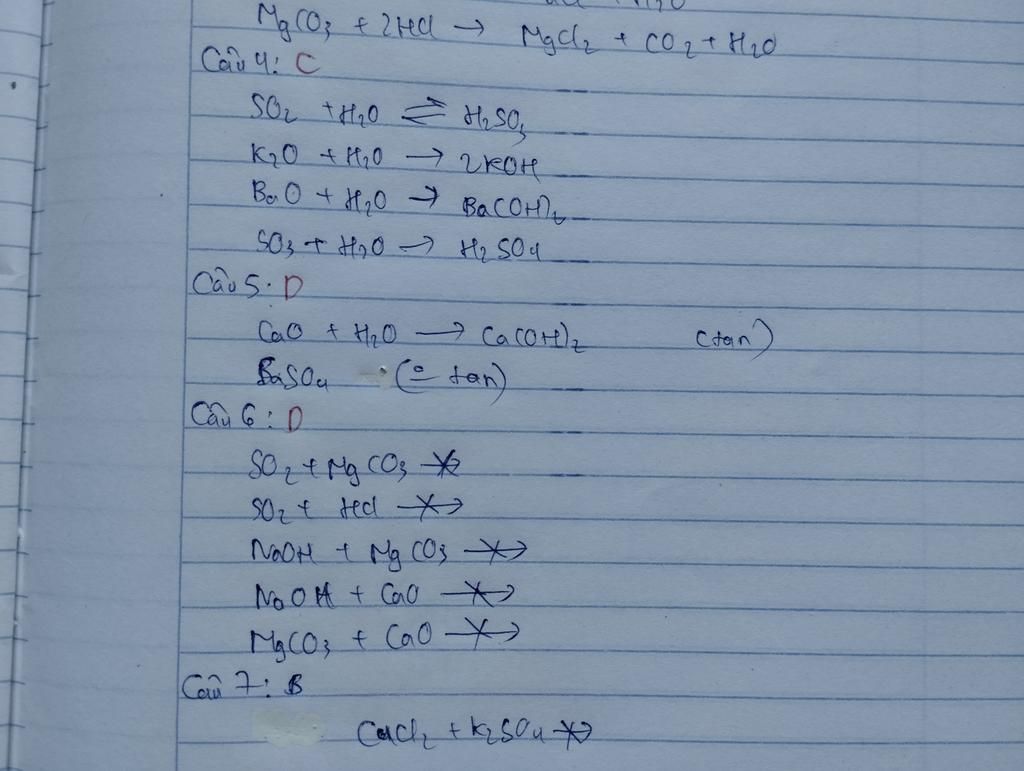 MgCO₃ + 2HCl → MgCl₂ + CO₂ + H₂O
Câu 4: C
SO₂ + H₂O ⇌ H₂SO₃
K₂O + H₂O → 2KOH
BaO + H₂O → Ba(OH)₂
SO₃ + H₂O → H₂SO₄
Câu 5: D
CaO + H₂O → Ca(OH)₂ (tan)
BaSO₄ (o̲ tan)
Câu 6: D
SO₂ + MgCO₃ ↛
SO₂ + HCl ↛
NaOH + MgCO₃ ↛
NaOH + CaO ↛
MgCO₃ + CaO ↛
Câu 7: B
CuCl₂ + K₂SO₄ ↛